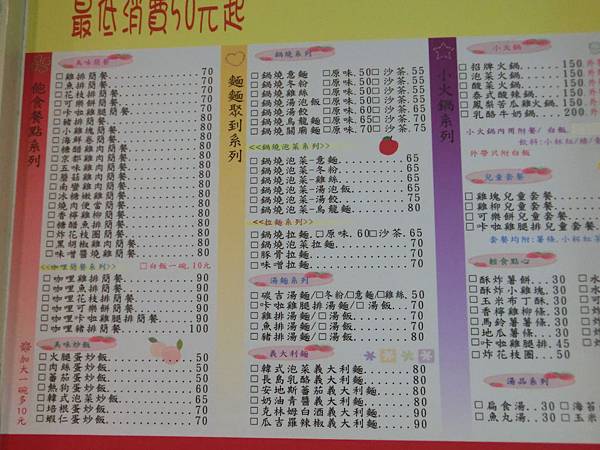 最低消費50元起
飽食餐點系列
美味簡餐
□雞排簡餐 70
□魚排簡餐 70
□花枝排簡餐 70
□可樂餅簡餐 70
□卡啦雞腿簡餐 80
□豬排簡餐 80
□小雞塊簡餐 80
□海鮮卷簡餐 80
□糖醋魚簡餐 80
□京都雞肉簡餐 80
□五味雞肉簡餐 80
□蘑菇雞肉簡餐 80
□南蠻雞肉簡餐 80
□冰糖嫩雞簡餐 80
□燒肉便當簡餐 80
□香檸雞柳簡餐 80
□糖醋雞丁簡餐 80
□炸花枝圈簡餐 80
□黑胡椒雞肉簡餐 80
□味噌醬燒雞簡餐 80
<<咖哩簡餐系列>> □白飯一碗.10元
□咖哩雞排簡餐 90
□咖哩魚排簡餐 90
□咖哩花枝排簡餐 90
□咖哩可樂餅簡餐 90
□咖哩卡啦雞腿排簡餐 100
□咖哩豬排簡餐 100
美味炒飯
加大一碗多10元
□火腿蛋炒飯 50
□肉絲蛋炒飯 50
□蕃茄蛋炒飯 50
□熱狗蛋炒飯 60
□韓式泡菜炒飯 65
□培根蛋炒飯 70
□蝦仁蛋炒飯 70
麵麵聚到系列
鍋燒系列
□鍋燒意麵 □原味.50□沙茶.55
□鍋燒冬粉 □原味.50□沙茶.55
□鍋燒雞絲 □原味.50□沙茶.55
□鍋燒湯泡飯□原味.50□沙茶.55
□鍋燒湯餃 □原味.60□沙茶.65
□鍋燒烏龍麵□原味.65□沙茶.70
□鍋燒關廟麵□原味.70□沙茶.75
<<鍋燒泡菜系列>>
□鍋燒泡菜-意麵 65
□鍋燒泡菜-冬粉 65
□鍋燒泡菜-雞絲 65
□鍋燒泡菜-湯泡飯 65
□鍋燒泡菜-湯餃 75
□鍋燒泡菜-烏龍 80
<<拉麵系列>>
□鍋燒拉麵.□原味.60□沙茶.65
□鍋燒泡菜拉麵 70
□豚骨拉麵 70
□味噌拉麵 70
湯麵系列
□碳吉湯麵/□冬粉/□意麵/□雞絲.50
□卡啦雞腿排湯麵/□湯飯 70
□雞排湯麵/□湯飯 70
□魚排湯麵/□湯飯 70
□豬排湯麵/□湯飯 70
義大利麵
□韓式泡菜義大利麵 80
□長島乳酪義大利麵 80
□安地斯蕃茄義大利麵 80
□奶油青醬義大利麵 80
□克林姆白酒義大利麵 90
□瓜吉羅辣椒義大利麵 90
小火鍋系列
小火鍋
□招牌火鍋 150.外
□泡菜火鍋 150.外
□酸菜火鍋 150.外
□泰式酸辣鍋 150.外
□鳳梨苦瓜雞火鍋.150.外
□乳酪牛奶鍋 200.外
小火鍋內用附餐/白飯
飲料:小杯紅/綠
外帶只附白飯
兒童套餐
□雞塊兒童套餐
□雞柳兒童套餐
□可樂餅兒童套餐
□卡啦雞腿排兒童套餐
套餐均附:薯條.小杯紅茶
輕食點心
□酥炸薯餅..30
□酥炸小雞塊.30
□玉米布丁酥.30
□香檸雞柳條.30
□馬鈴薯薯條.30
□地瓜薯條..30
□卡啦雞腿排.45
□炸花枝圈..50
湯品系列
□扁食湯..30 □海苔
□魚丸湯..30 □玉米